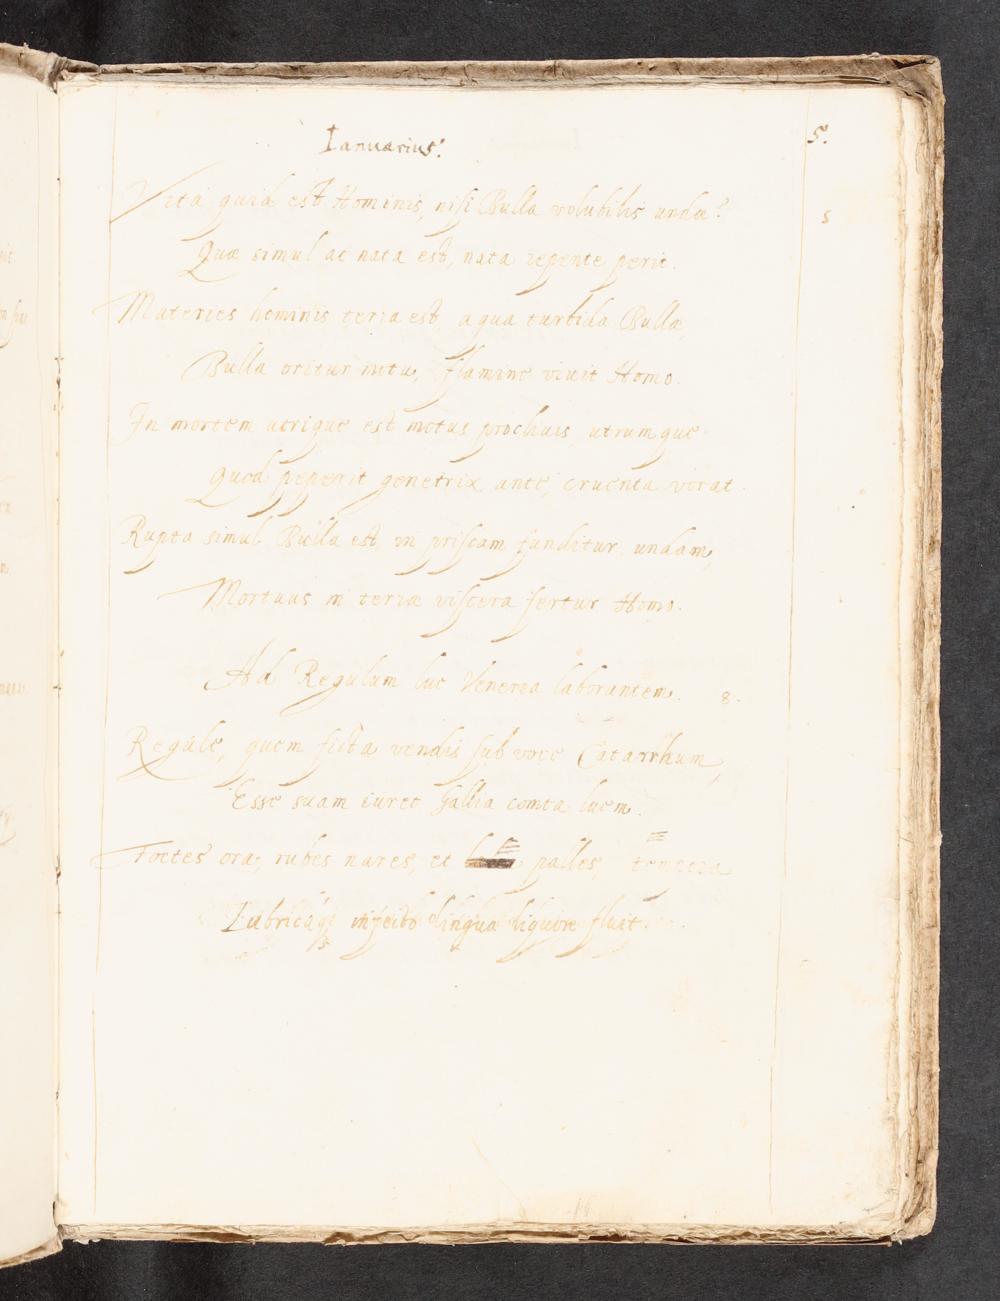 Ianuarius.
5.
Vita quid est Hominis, nisi Bulla volubilis undæ?
5
Quæ simul ac nata est, nata repente perit.
Materies hominis terra est, aqua turbida Bullæ,
Bulla oritur nutu, flamine viuit Homo.
In mortem utrique est motus procliuis, utrumque
Quod peperit genetrix ante, cruenta vorat.
Rupta simul Bulla est, in priscam funditur undam,
Mortuus in terræ viscera fertur Homo.
Ad Regulum lue Venerea laborantem. 8.
Regule, quem ficta vendis sub voce Catarrhum,
Esse suam iuret Gallia comta luem.
Foetes ora, rubes nares, et palles,
Lubricaq; infecto lingua liquore fluit.